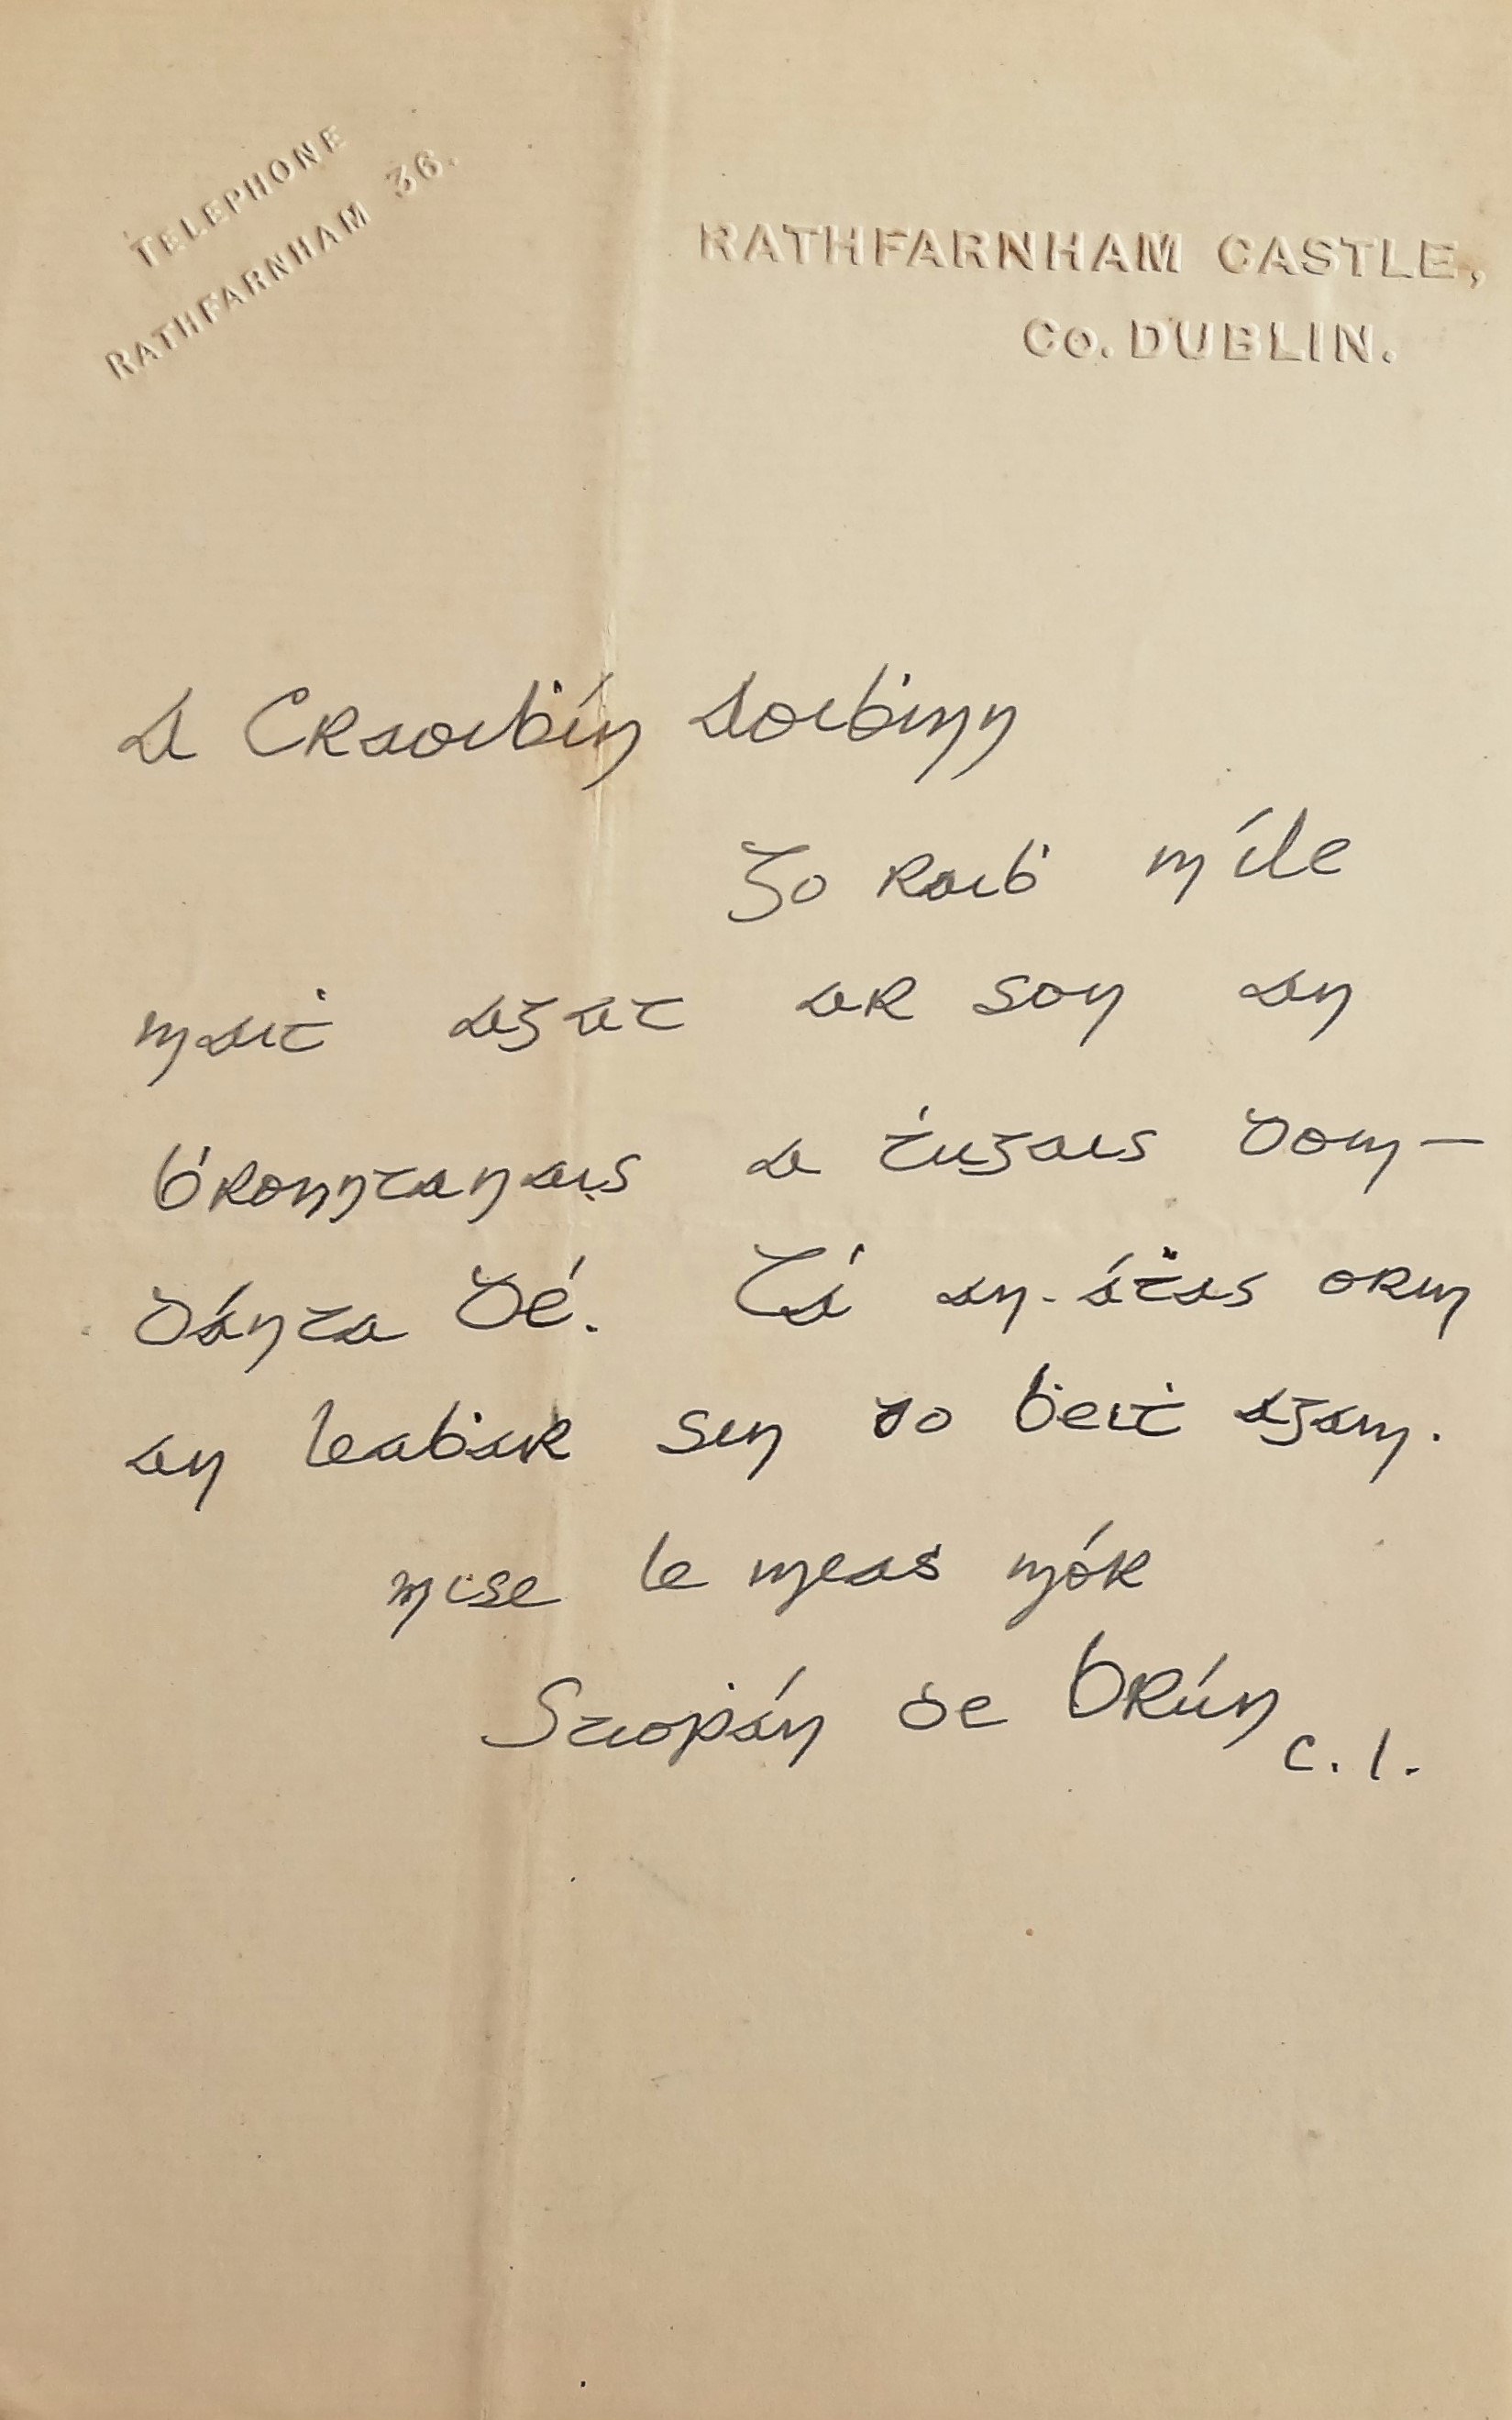 TELEPHONE
RATHFARNHAM 36.
RATHFARNHAM CASTLE,
Co. DUBLIN.
A Craoiḃín Aoiḃinn
Go raiḃ míle
maiṫ agat ar son an
ḃronntanais a ṫugais dom—
Dánta Dé. Tá an-áṫas orm
an leaḃar sin do ḃeiṫ agam.
mise le meas mór
Stiopán de Brún C.Í.